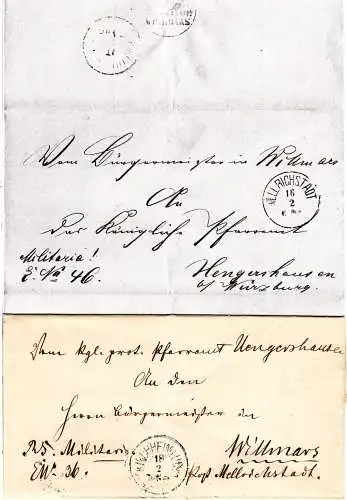 Vom Bürgermeister in Willmars
An
MELLRICHSTADT
16
2
das Königliche Pfarramt
Militaria!
E. No 46.
Uengershausen
b/ Würzburg.
Vom kgl. prot. Pfarramt Uengershausen
An den
Herrn Bürgermeister in
R.S. Militaria
E.No. 36.
18
2
Willmars
Post Mellrichstadt.